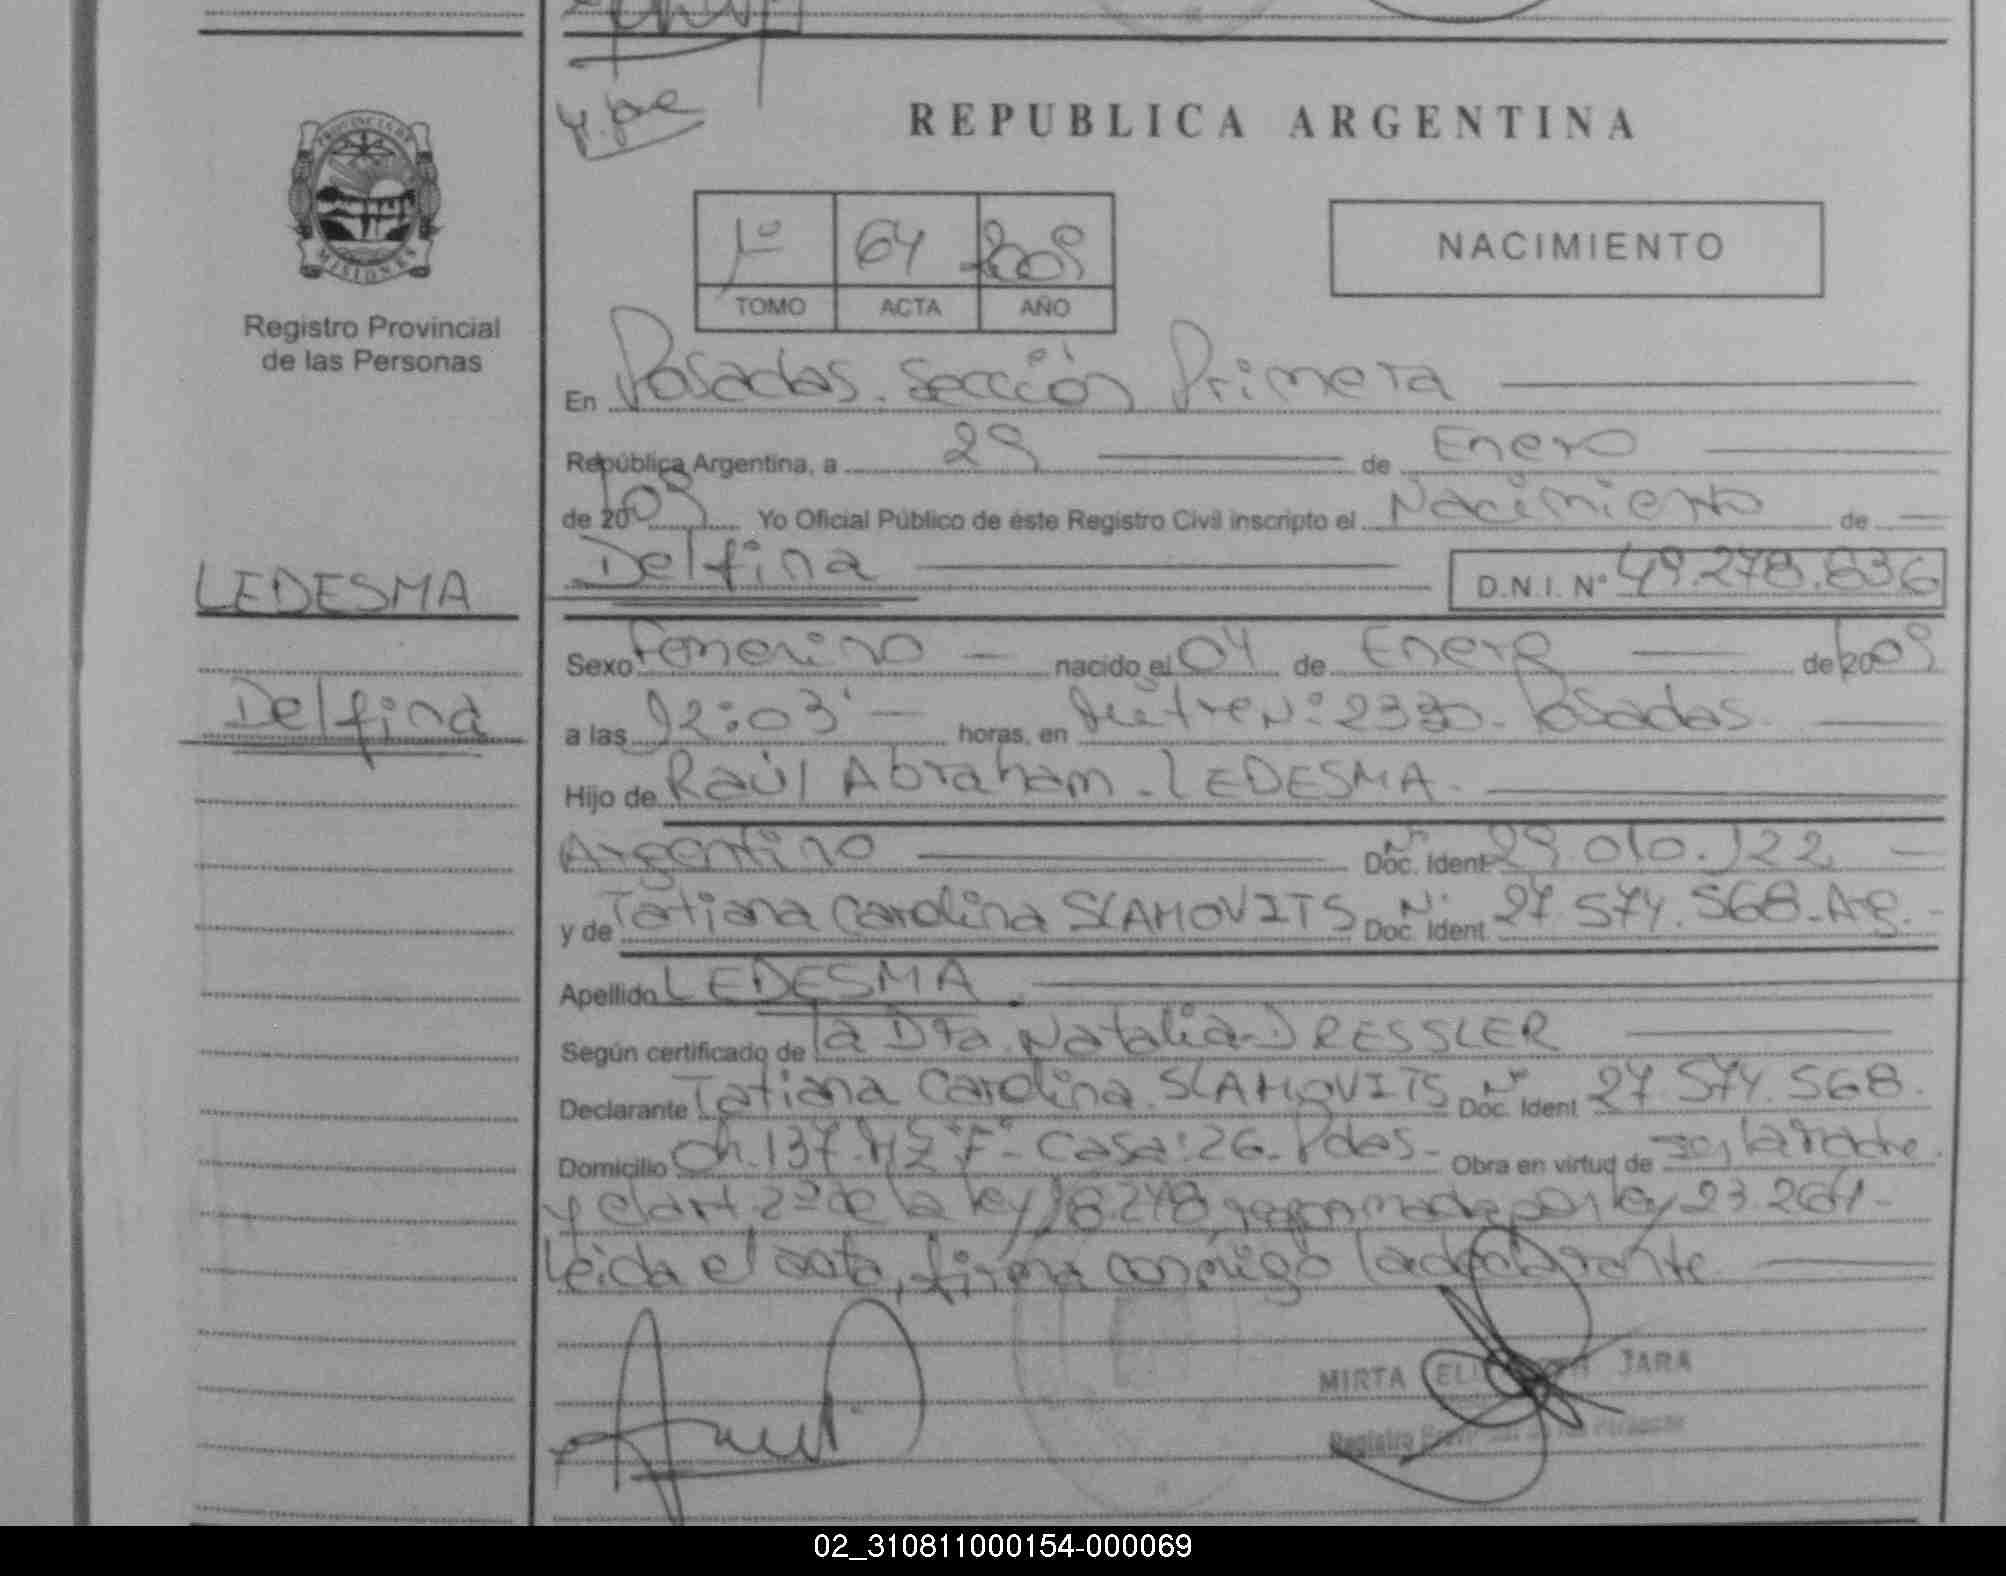 REPUBLICA ARGENTINA
PROVINCIA DE
MISIONES
Registro Provincial
de las Personas
1º 64 2009
TOMO ACTA AÑO
NACIMIENTO
En Posadas. Sección Primera
República Argentina, a 29 de Enero
de 2009 Yo Oficial Público de éste Registro Civil inscripto el Nacimiento de
LEDESMA
Delfina
Delfina D.N.I. Nº 49.278.836
Sexo Femenino nacido el 04 de Enero de 2009
a las 12:03' horas, en Mitre Nº 2330. Posadas.
Hijo de Raúl Abraham. LEDESMA.
Argentino Nº Doc. Ident 29.010.122
y de Tatiana Carolina SLAMOVITS Nº Doc. Ident. 27.574.568. Arg.
Apellido LEDESMA
Según certificado de la Dra. Natalia DRESSLER
Declarante Tatiana Carolina. SLAMOVITS Nº Doc. Ident 27.574.568.
Domicilio Ch. 137. Mz "F" - Casa: 26. Pdas. Obra en virtud de ser la madre
y el art. 2º de la ley 18.248, reformada por ley 23.264-
Leida el acta, firma conmigo la declarante
MIRTA JARA
Registro Provincial de las Personas
02_310811000154-000069